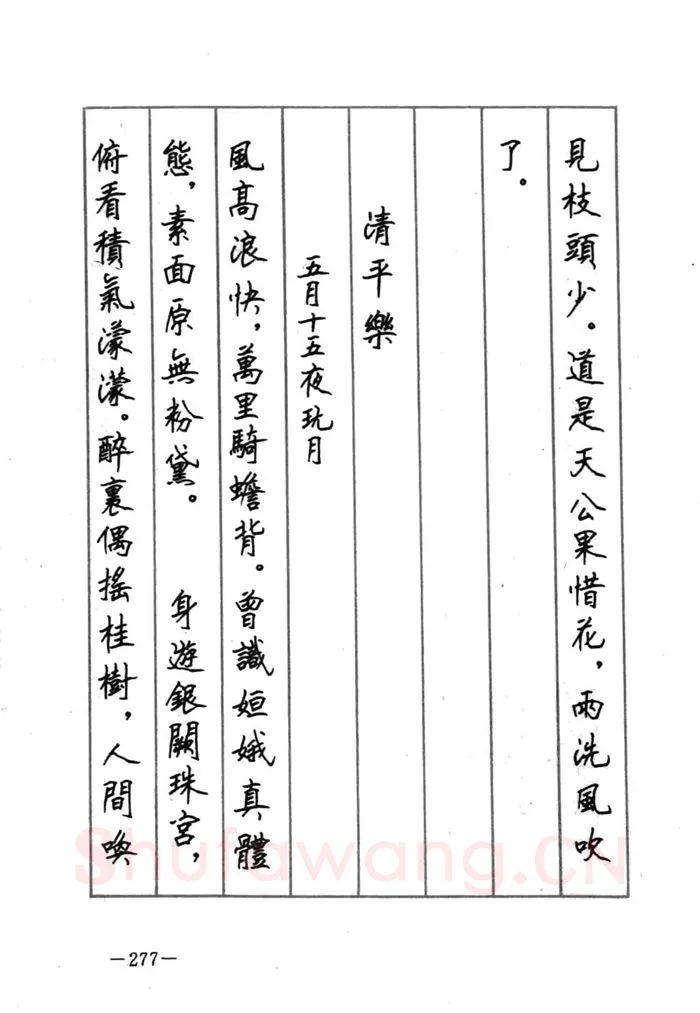 見枝頭少。道是天公果惜花，雨洗風吹
了。
清平樂
五月十五夜玩月
風高浪快，萬里騎蟾背。曾識姮娥真體
態，素面原無粉黛。 身遊銀闕珠宮，
俯看積氣濛濛。醉裏偶搖桂樹，人間喚
—277—
Shufawang.CN